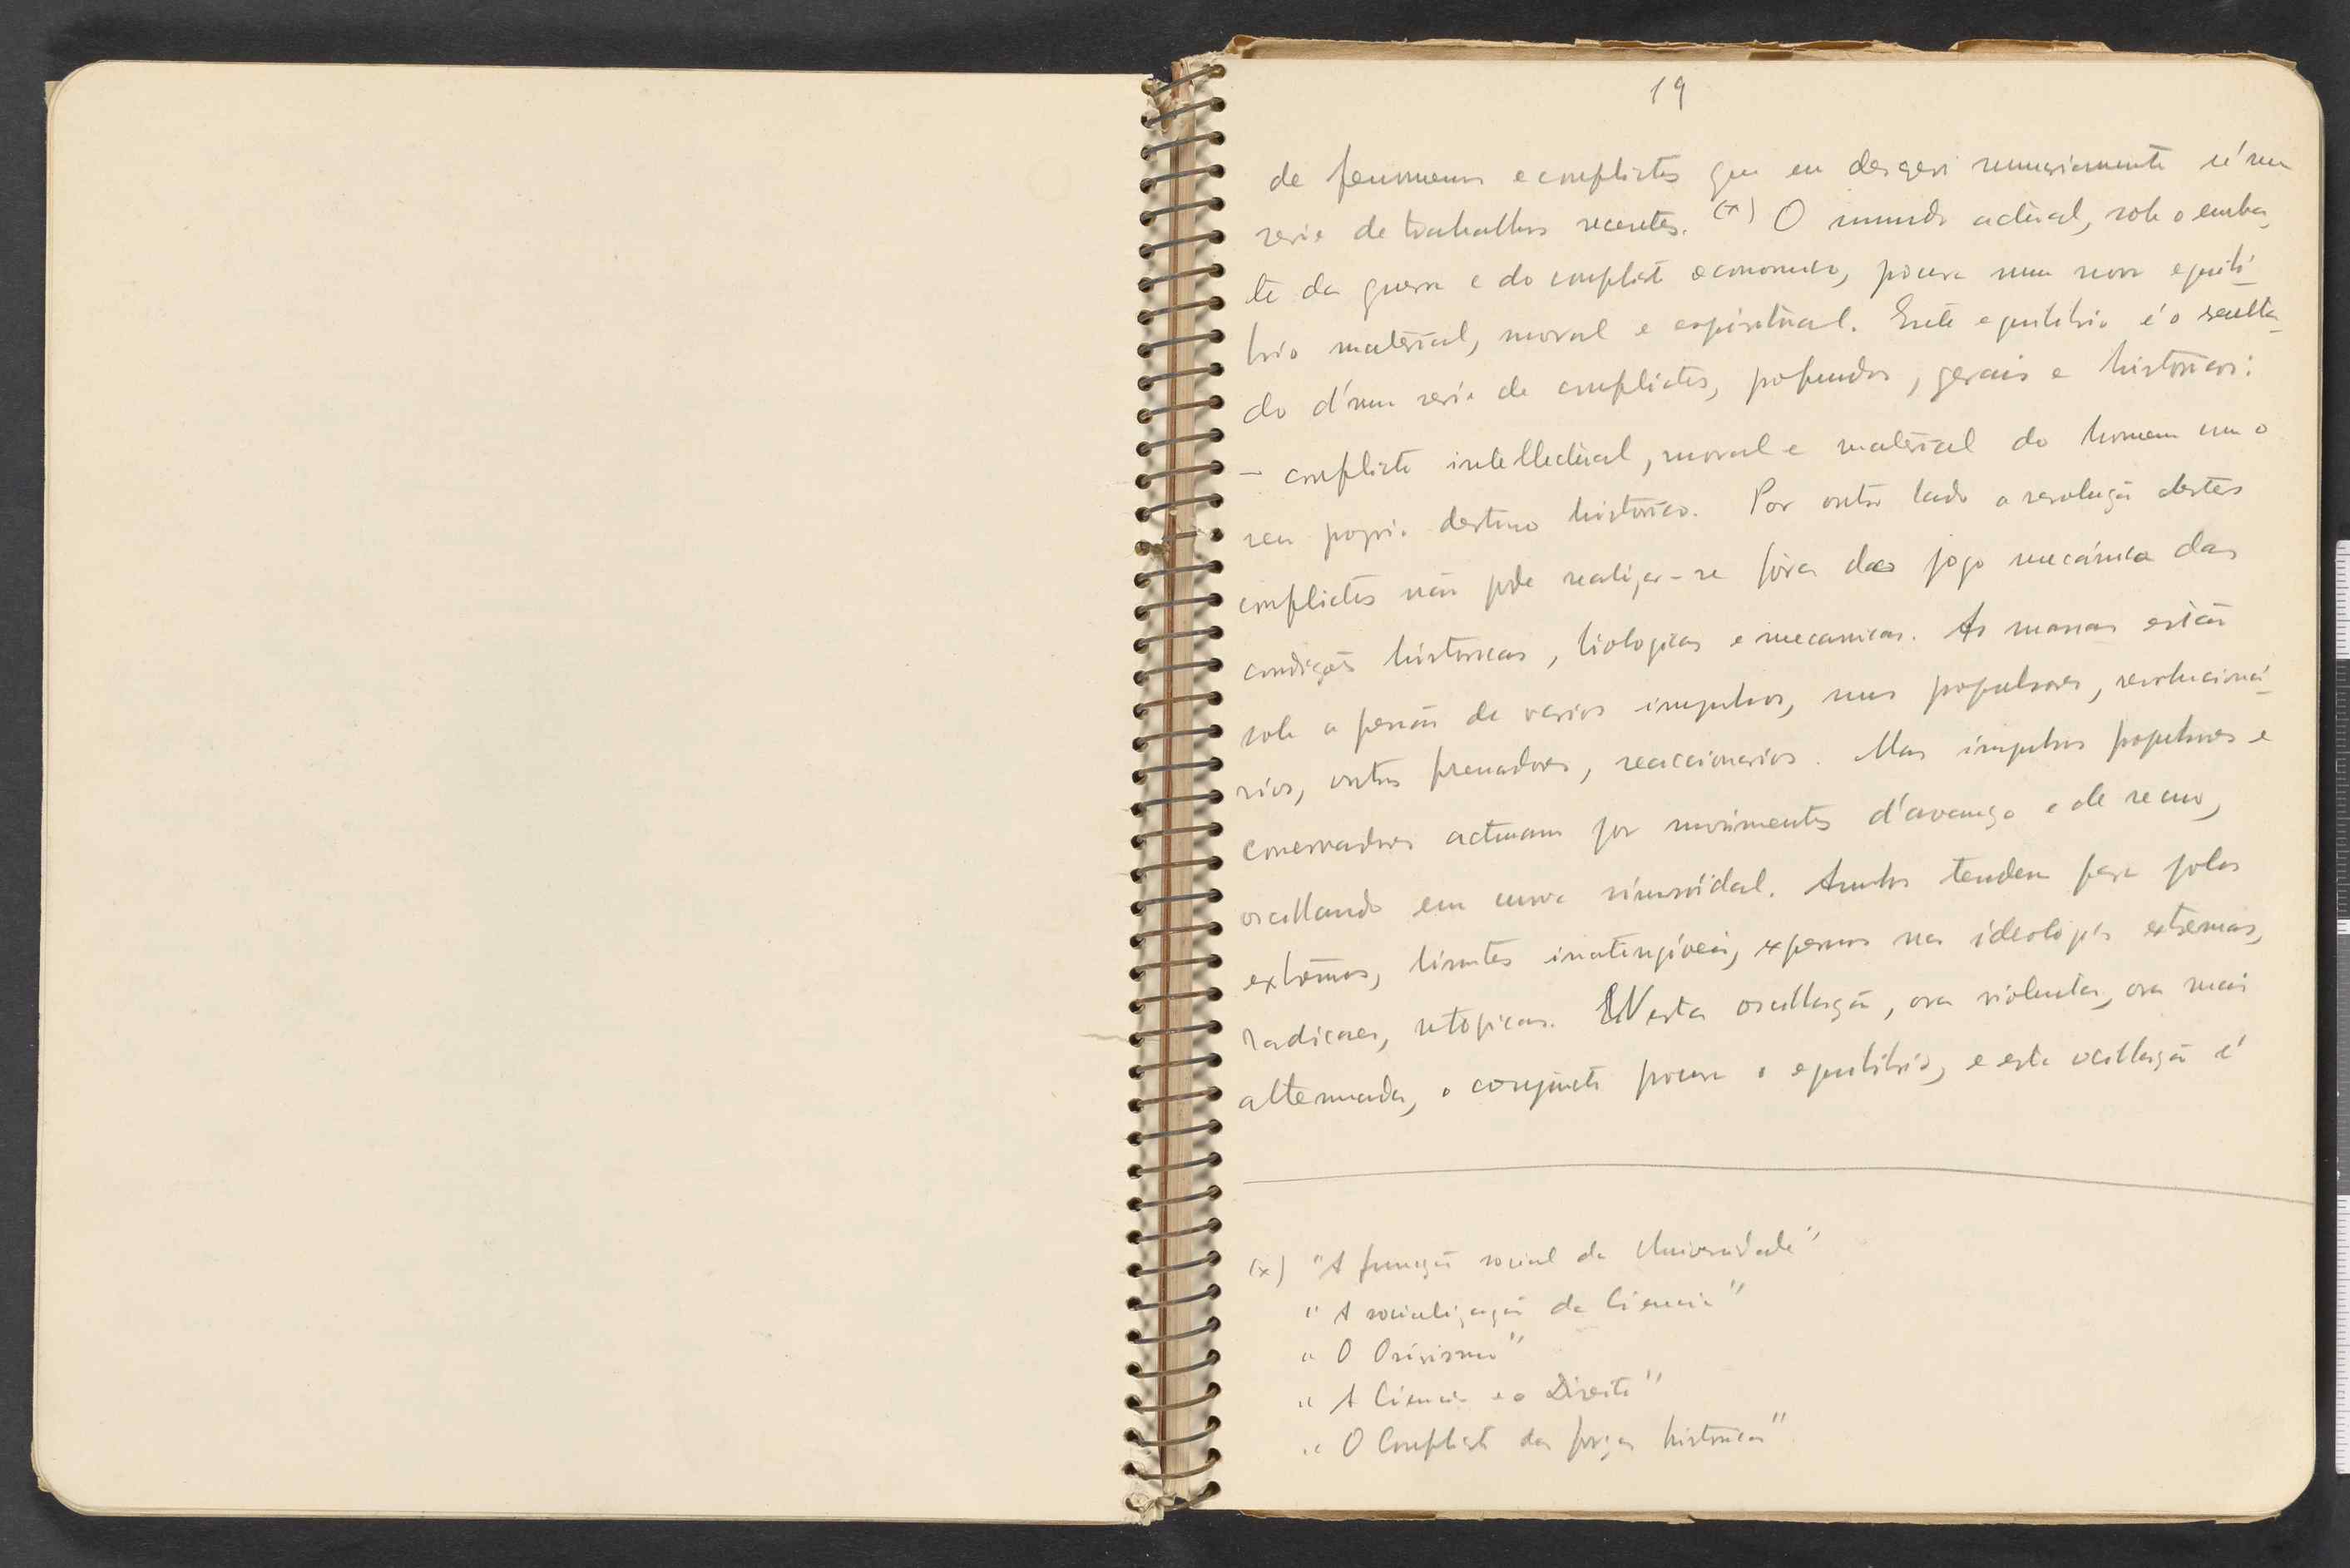 19
de fenomenos e conflictos que eu descrevi sumariamente n'uma
serie de trabalhos recentes. (x) O mundo actual, sob o emba-
te da guerra e do conflicto economico, procura um novo equili-
brio material, moral e espiritual. Este equilibrio é o resulta-
do d'uma serie de conflictos, profundos, gerais e historicos:
– conflicto intellectual, moral e material do homem com o
seu proprio destino historico. Por outro lado a resolução destes
conflictos não pode realizar-se fóra do jogo mecánico das
condições historicas, biologicas e mecanicas. As massas estão
sob a pressão de varios impulsos, uns propulsores, revolucioná-
rios, outros frenadores, reaccionarios. Mas impulsos propulsores e
conservadores actuam por movimentos d'avanço e de recuo,
oscillando em curva sinusoidal. Ambos tendem para polos
extrêmos, limites inatingíveis, expressos nas ideologias extremas,
radicaes, utopicas. Nesta oscillação, ora violenta, ora mais
attenuada, o conjuncto procura o equilibrio, e esta oscillação é
(x) "A função social da Universidade"
" A socialização da Ciencia"
" O"
" A Ciencia e o Direito"
" O Conflicto das forças historicas"